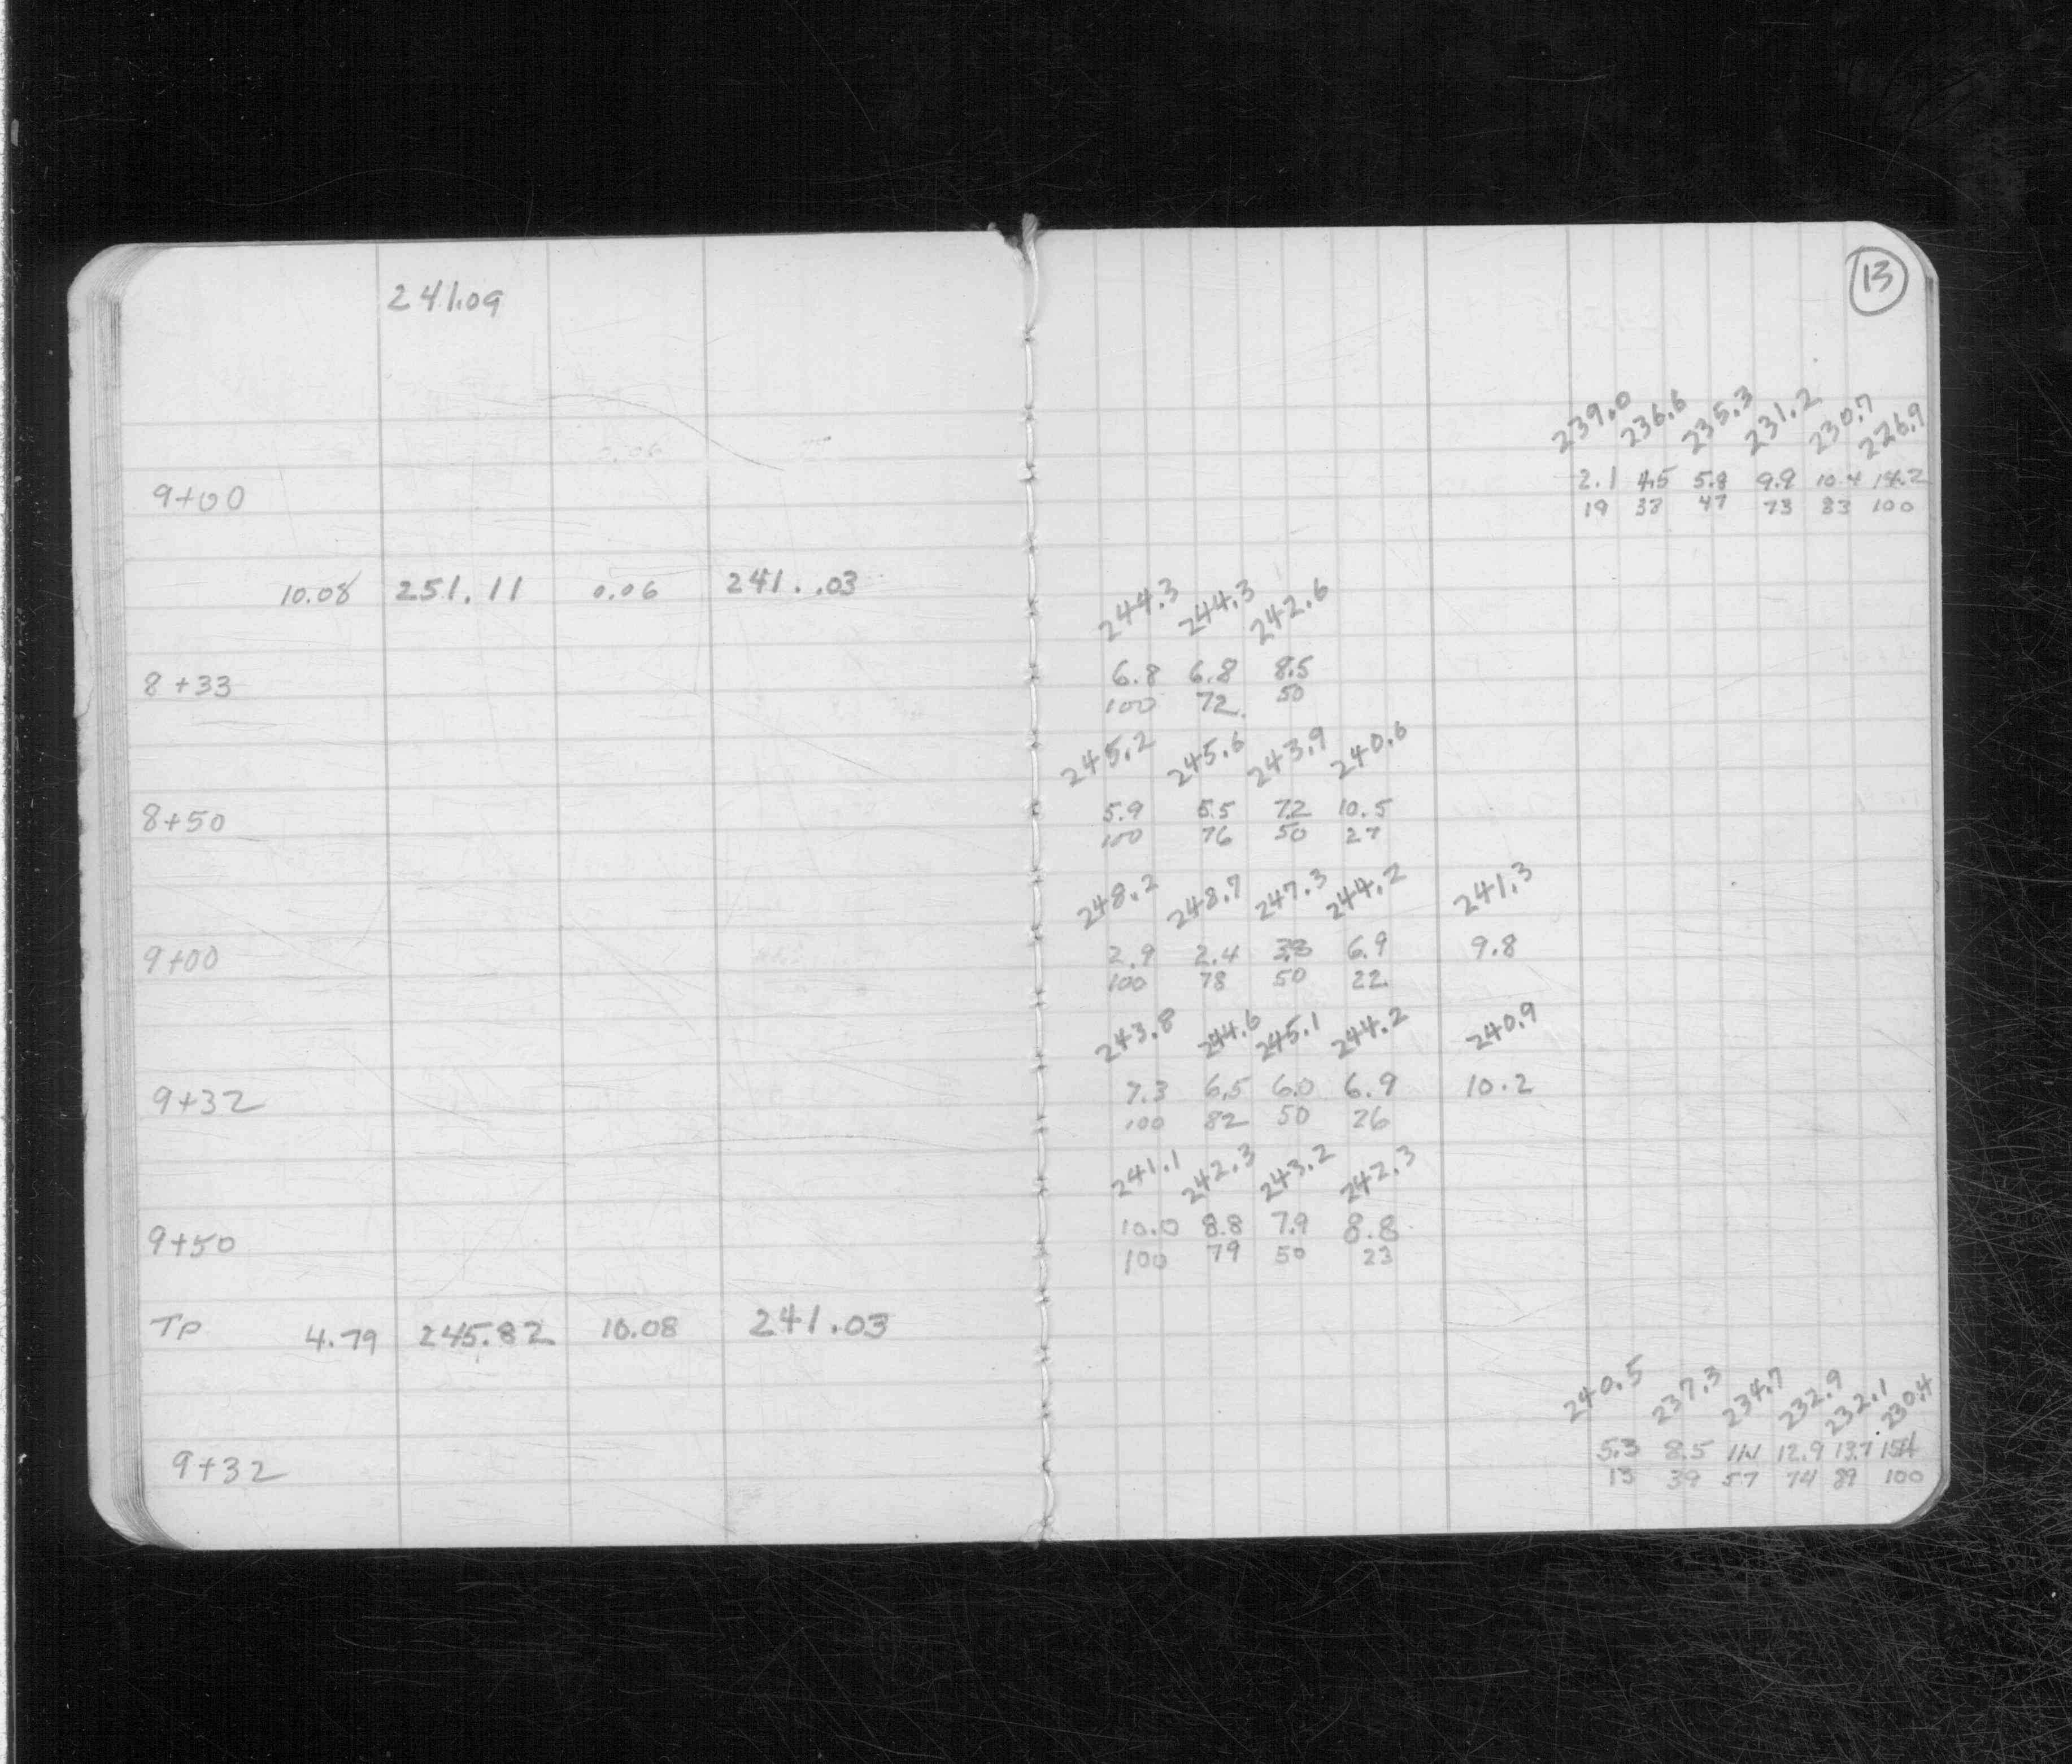 241.09
13
239.0 236.6 235.3 231.2 230.7 226.9
9+00 2.1 4.5 5.8 9.9 10.4 14.2
19 33 47 73 83 100
10.08 251.11 0.06 241..03
244.3 244.3 242.6
8+33 6.8 6.8 8.5
100 72 50
245.2 245.6 243.9 240.6
8+50 5.9 5.5 7.2 10.5
100 76 50 27
248.2 248.7 247.3 244.2 241.3
9+00 2.9 2.4 3.8 6.9 9.8
100 78 50 22
243.8 244.6 245.1 244.2 240.9
9+32 7.3 6.5 6.0 6.9 10.2
100 82 50 26
241.1 242.3 243.2 242.3
9+50 10.0 8.8 7.9 8.8
100 79 50 23
TP 4.79 245.82 10.08 241.03
240.5 237.3 234.7 232.9 232.1 230.4
9+32 5.3 8.5 11.1 12.9 13.7 15.4
13 39 57 74 89 100